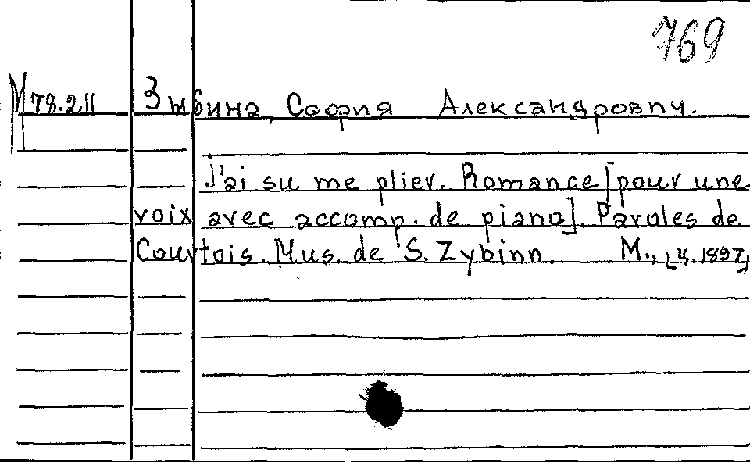 769
М 78.211 Зыбина, София Александровну.
J'ai su me plier. Romance [pour une
voix avec accomp. de piano]. Paroles de
Courtois. Mus. de S. Zybinn. M., [4.1897]